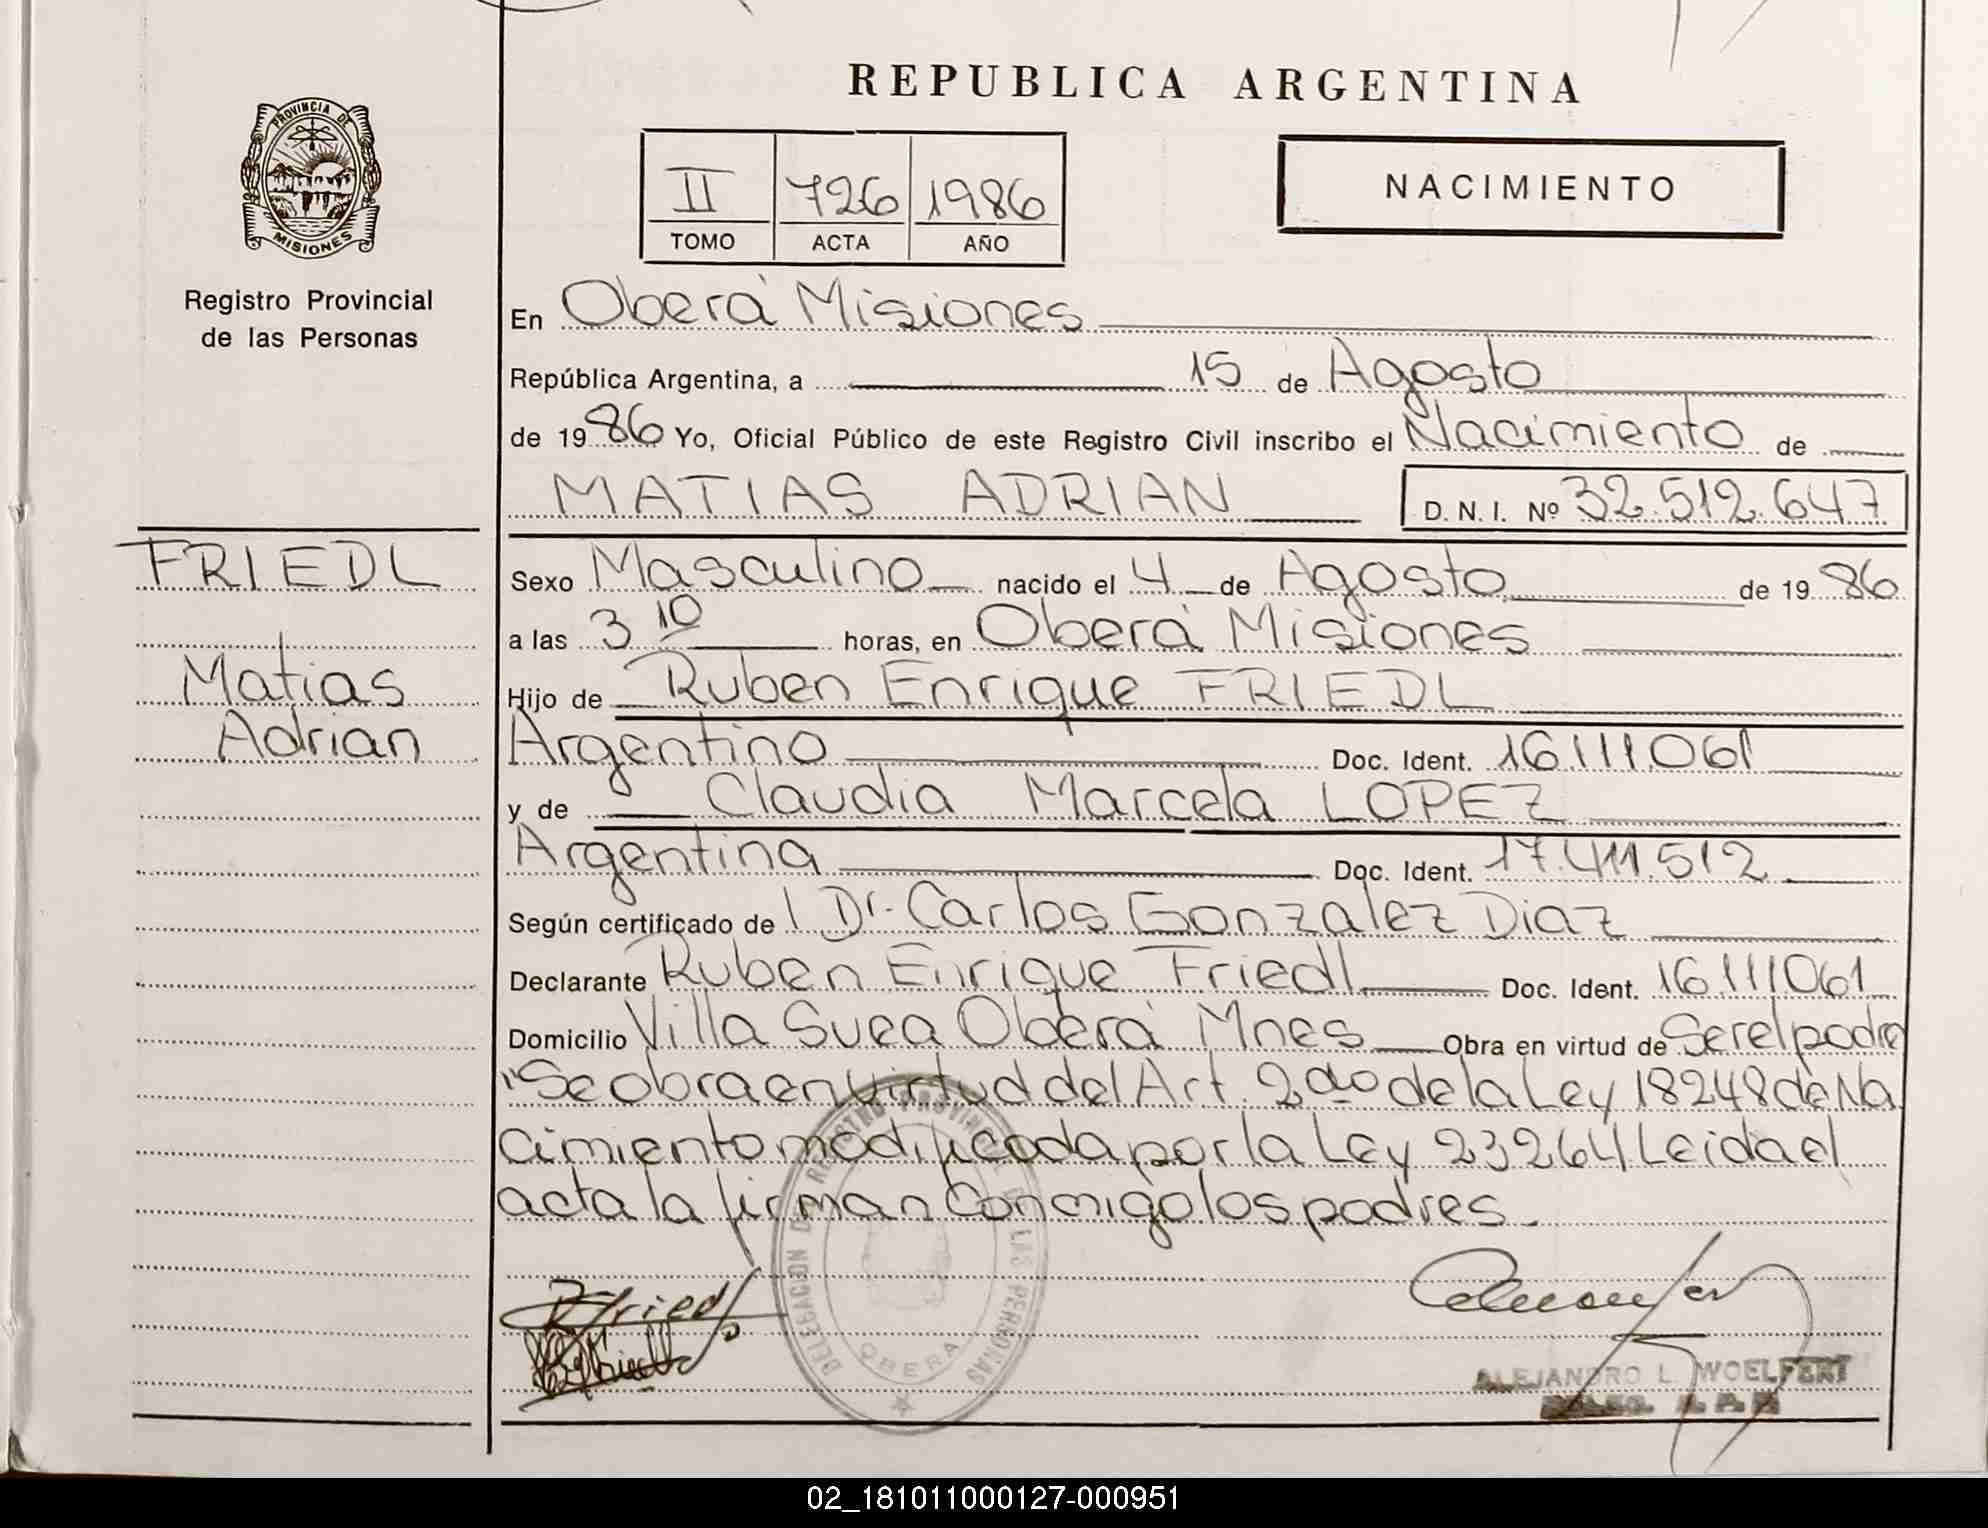 REPUBLICA ARGENTINA
PROVINCIA DE
MISIONES
II 726 1986
TOMO ACTA AÑO
NACIMIENTO
Registro Provincial
de las Personas
En Oberá Misiones
República Argentina, a 15 de Agosto
de 1986 Yo, Oficial Público de este Registro Civil inscribo el Nacimiento de
MATIAS ADRIAN D. N. I. Nº 32.512.647
FRIEDL
Matias
Adrian
Sexo Masculino nacido el 4 de Agosto de 1986
a las 3 10 horas, en Oberá Misiones
Hijo de Ruben Enrique FRIEDL
Argentino Doc. Ident. 16.111.061
y de Claudia Marcela LOPEZ
Argentina Doc. Ident. 17.411.512
Según certificado de Dr. Carlos Gonzalez Diaz
Declarante Ruben Enrique Friedl Doc. Ident. 16.111.061
Domicilio Villa Svea Oberá Mnes Obra en virtud de Ser el padre
"Se obra en virtud del Art. 2do de la Ley 18248 de Na
cimiento modificada por la Ley 23264 Leida el
acta la firman Conmigo los padres.
DELEGACION DEL REGISTRO PROVINCIAL DE LAS PERSONAS
OBERA
Friedl
ALEJANDRO L. WOELFERT
02_181011000127-000951